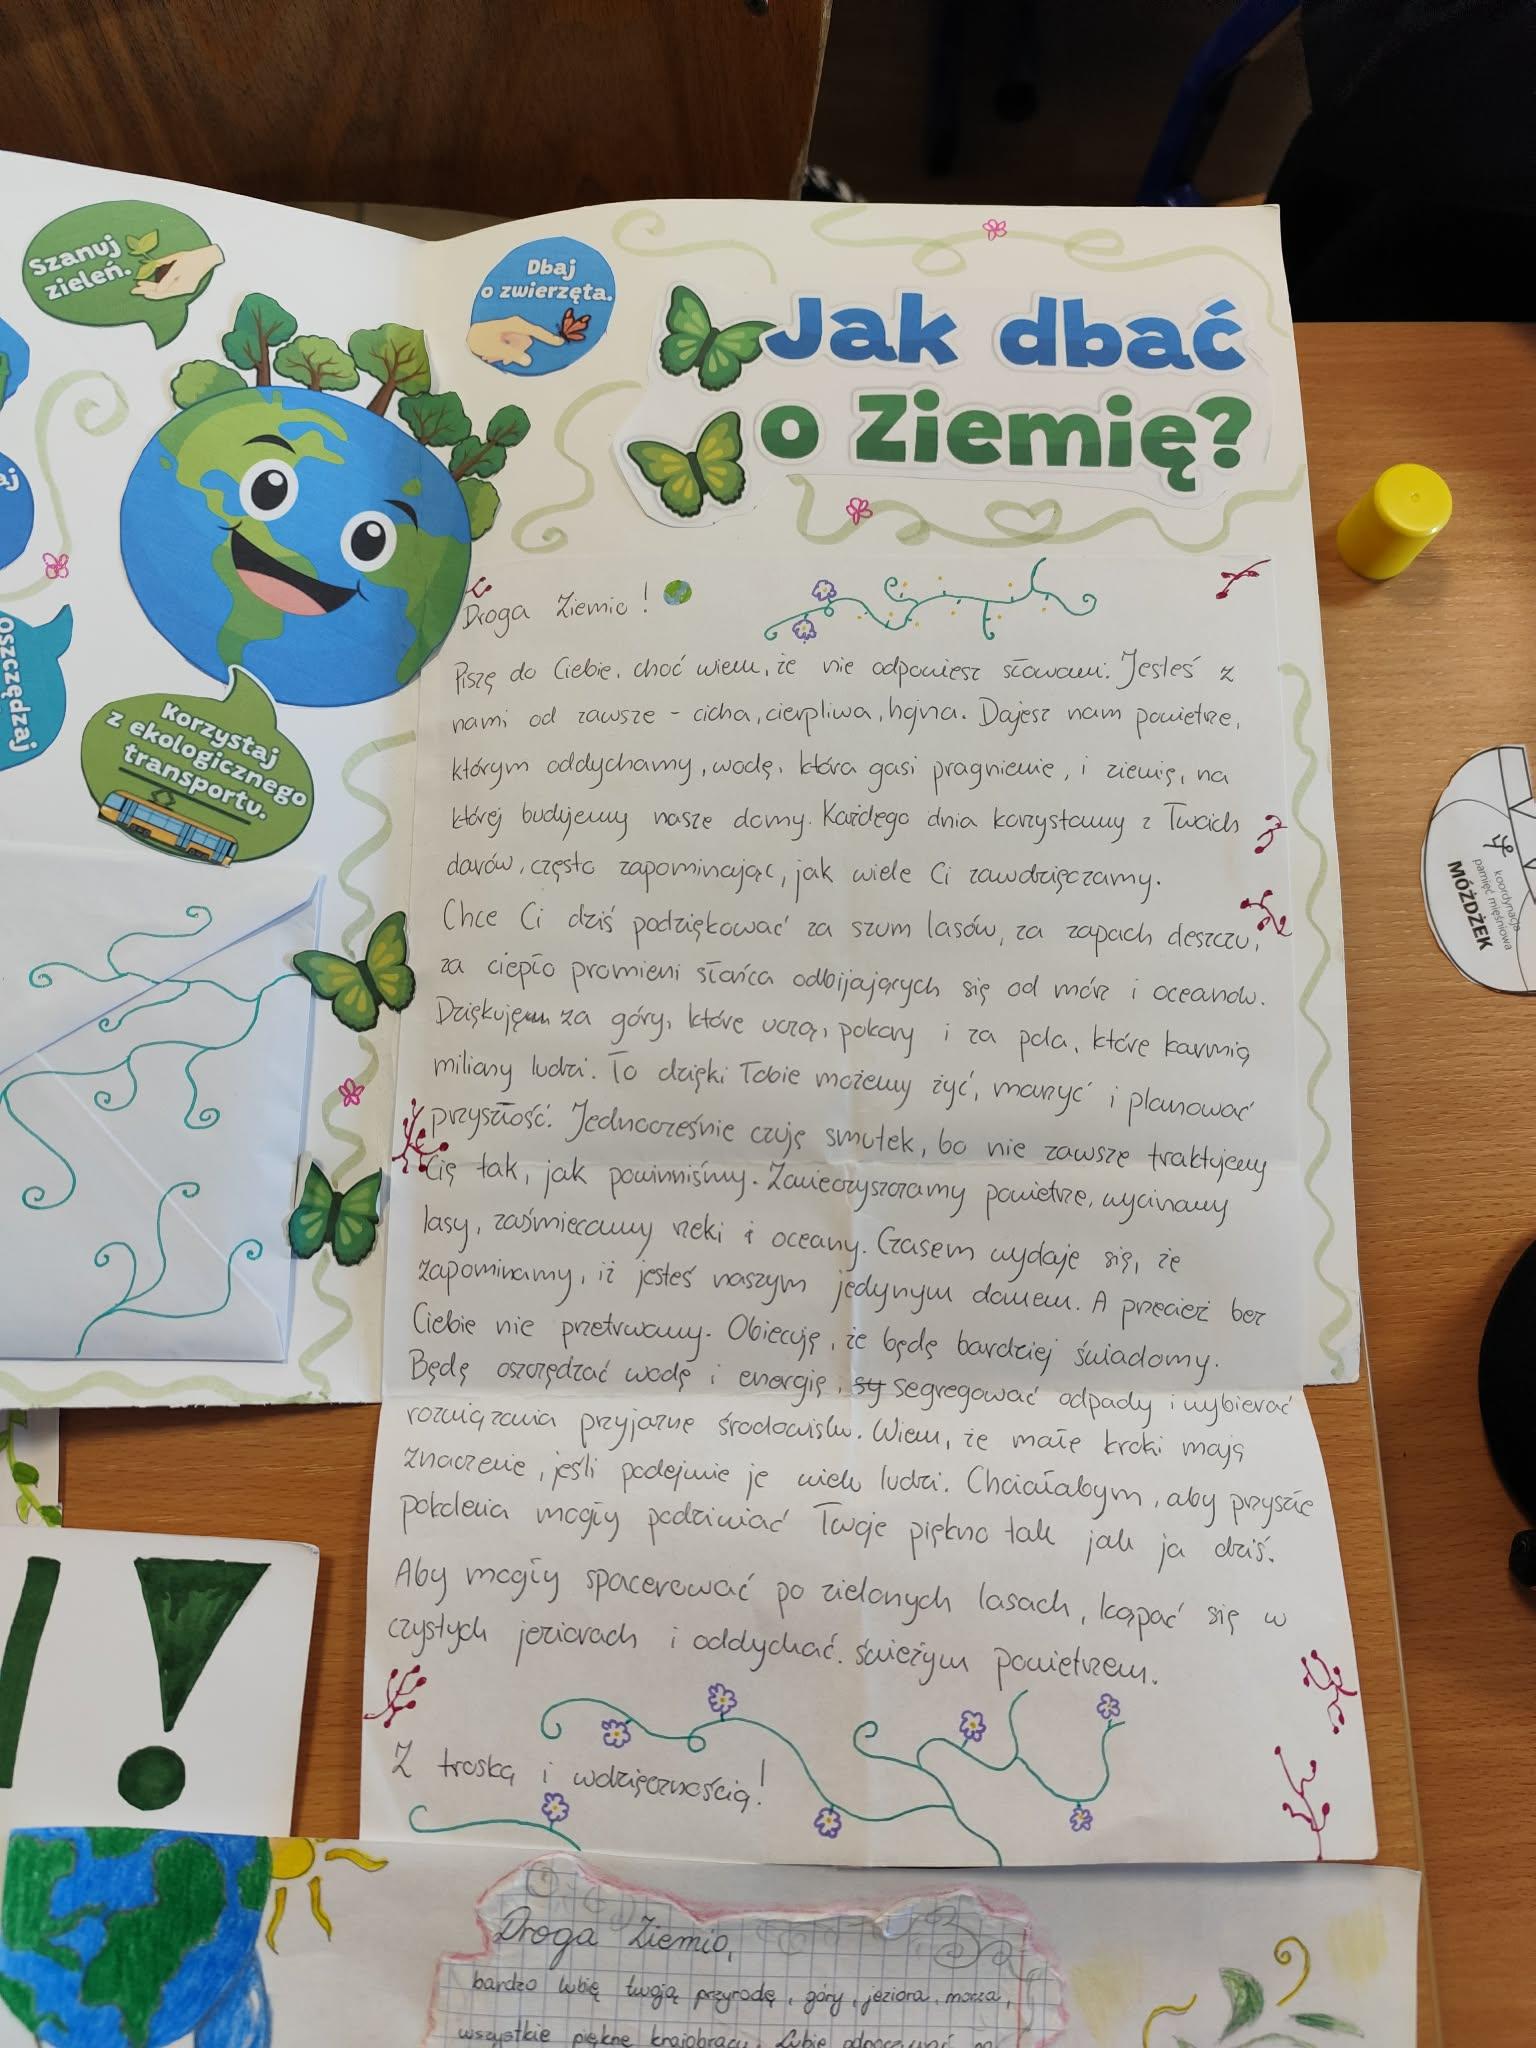 Szanuj
zieleń.
Dbaj
o zwierzęta.
Jak dbać
o Ziemię?
aj
oszczędzaj
Korzystaj
z ekologicznego
transportu.
Droga Ziemio!
Piszę do Ciebie, choć wiem, że nie odpowiesz słowami. Jesteś z
nami od zawsze - cicha, cierpliwa, hojna. Dajesz nam powietrze,
którym oddychamy, wodę, która gasi pragnienie, i ziemię, na
której budujemy nasze domy. Każdego dnia korzystamy z Twoich
darów, często zapominając, jak wiele Ci zawdzięczamy.
Chce Ci dziś podziękować za szum lasów, za zapach deszczu,
za ciepło promieni słońca odbijających się od mórz i oceanów.
Dziękuję za góry, które uczą, pokory i za pola, które karmią
miliony ludzi. To dzięki Tobie możemy żyć, marzyć i planować
przyszłość. Jednocześnie czuję smutek, bo nie zawsze traktujemy
Cię tak, jak powinniśmy. Zanieczyszczamy powietrze, wycinamy
lasy, zaśmiecamy rzeki i oceany. Czasem wydaje się, że
zapominamy, iż jesteś naszym jedynym domem. A przecież bez
Ciebie nie przetrwamy. Obiecuję, że będę bardziej świadomy.
Będę oszczędzać wodę i energię, sy segregować odpady i wybierać
rozwiązania przyjazne środowisku. Wiem, że małe kroki mają
znaczenie, jeśli podejmie je wielu ludzi. Chciałabym, aby przyszłe
pokolenia mogły podziwiać Twoje piękno tak jak ja dziś.
Aby mogły spacerować po zielonych lasach, kąpać się w
czystych jeziorach i oddychać świeżym powietrzem.
Z troską i wdzięcznością!
koordynacja
pamięć mięśniowa
MÓŻDŻEK
!
Droga Ziemio,
bardzo lubię twoją przyrodę, góry, jeziora, morza,
wszystkie piękne krajobrazy. Lubię odpoczywać na